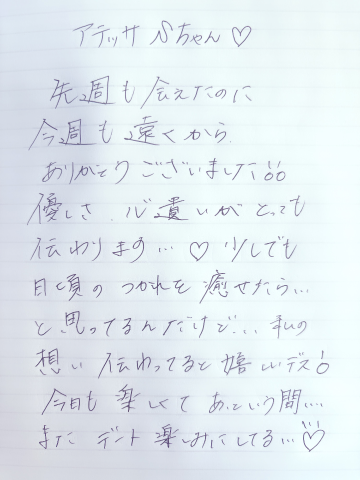 アテッサ Sちゃん♡
先週も会えたのに
今週も遠くから
ありがとうございました!!
優しさ、心遣いがとっても
伝わります…♡ 少しでも
日頃のつかれを癒せたら…
と思ってるんだけど… 私の
想い伝わってると嬉しいデス!
今日も楽しくてあっという間…
また デート楽しみにしてる…♡